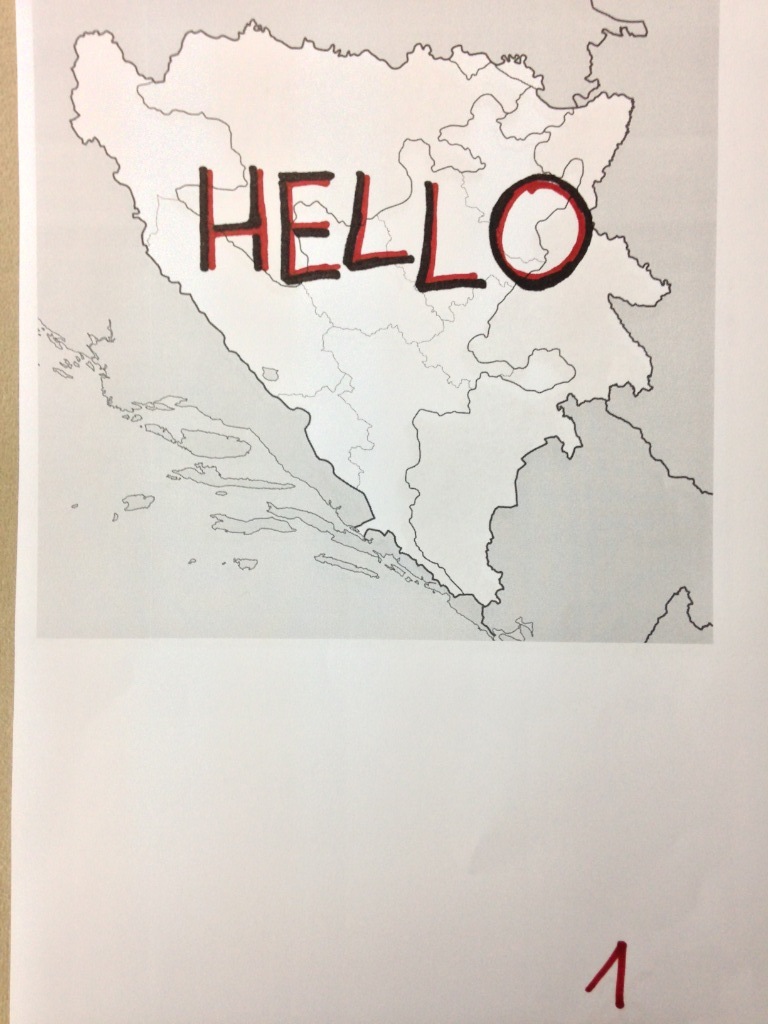 HELLO
1